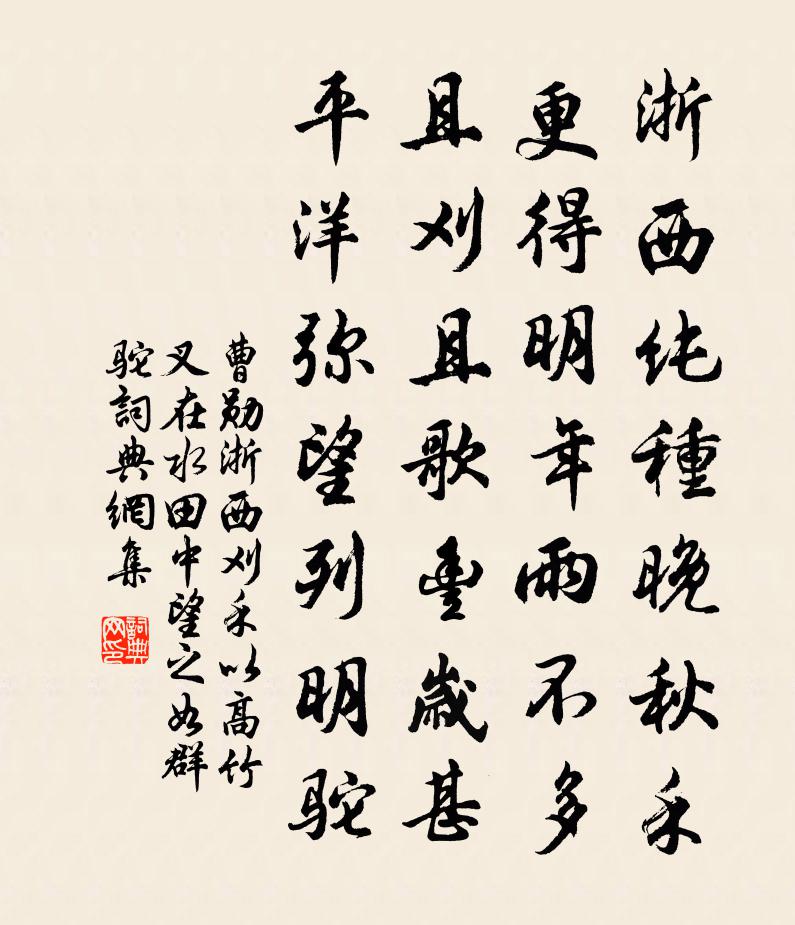 浙西纯種晚秋禾
更得明年雨不多
且刈且歌豊歲甚
平洋弥望列明駝
曹勛浙西刈禾以高竹
叉在水田中望之如群
駝詞典網集
詞典网印